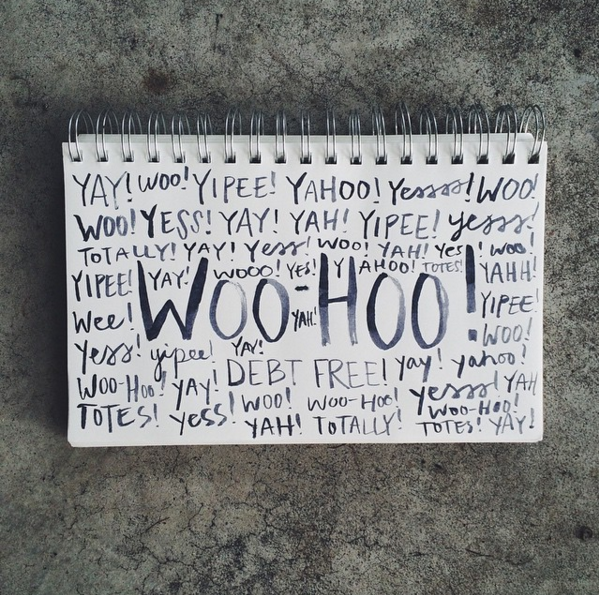 YAY! WOO! YIPEE! YAHOO! Yessss! WOO!
WOO! YESS! YAY! YAH! YIPEE! yesss!
TOTALLY! YAY! Yess! WOO! YAH! Yes! WOO!
YIPEE! YAY! WOOO! YES! YAHOO! TOTES! YAHH!
WOO-HOO!
YAH!
YIPEE!
Wee! WOO!
Yess! yipee! YAY!
DEBT FREE! yay! yahoo!
WOO-HOO! YAY! WOO! WOO-HOO! yesss! YAH
TOTES! yess! YAH! TOTALLY! WOO-HOO!
TOTES! YAY!